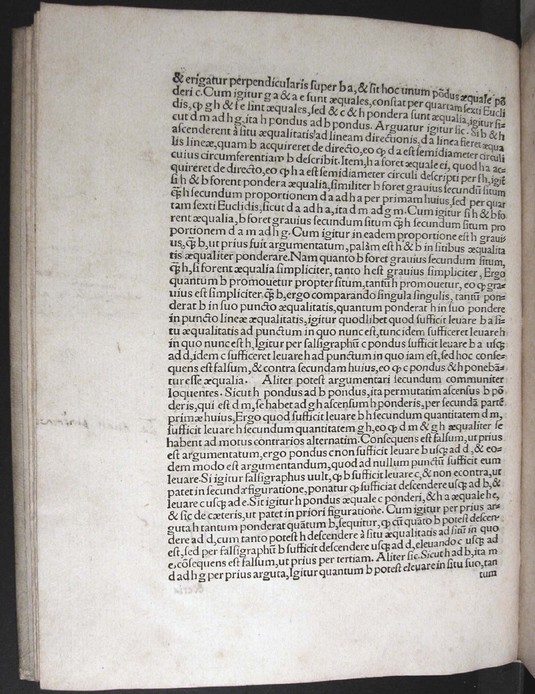 & erigatur perpendicularis super b a, & sit hoc unum põdus æquale põ
deri c. Cum igitur g a & a e sunt æquales, constat per quartam sexti Eucli
dis, ꝙ g h & f e sint æquales, sed & c & h pondera sunt æqualia, igitur si
cut d m ad h g, ita h pondus ad b pondus. Arguatur igitur sic. Si b & h
ascenderent à situ æqualitatis ad lineam directionis, d a linea fieret æqua
lis lineæ, quam b acquireret de directo, eo ꝙ d a est semidiameter circuli
cuius circumferentiam b describit. Item, h a foret æquale ei, quod h a ac-
quireret de directo, eo ꝙ h a est semidiameter circuli descripti per h, igit̃
si h & b forent pondera æqualia, similiter b foret grauius secundũ situm
q̃ h secundum proportionem d a ad h a per primam huius, sed per quar
tam sexti Euclidis, sicut d a ad h a, ita d m ad g m. Cum igitur si h & b fo
rent æqualia, b foret grauius secundum situm q̃ h secundum situm pro
portionem d a m ad h g. Cum igitur in eadem proportione est h grauis
us, q̃ b, ut prius fuit argumentatum, palàm est h & b in sitibus æqualita
tis æqualiter ponderare. Nam quanto b foret grauius secundum situm,
q̃ h, si forent æqualia simpliciter, tanto h est grauius simpliciter. Ergo
quantum b promouetur propter situm, tantũ h promouetur, eo ꝙ gra-
uius est simpliciter q̃ b, ergo comparando singula singulis, tantũ pon-
derat b in suo puncto æqualitatis, quantum ponderat h in suo pondere
in puncto lineæ æqualitatis, igitur quodlibet quod sufficit leuare b a si-
tu æqualitatis ad punctum in quo nunc est, tunc idem sufficeret leuare h
in quo nunc est h, Igitur per falsigraphũ c pondus sufficit leuare b a usq̃
ad d, idem c sufficeret leuare h ad punctum in quo iam est, sed hoc conse-
quens est falsum, & contra secundam huius, eo ꝙ c pondus & h ponebã-
tur esse æqualia. Aliter potest argumentari secundum communiter
loquentes. Sicut h pondus ad b pondus, ita permutatim ascensus b põ
deris, qui est d m, se habet ad g h ascensum h ponderis, per secundã partẽ
primæ huius, Ergo quod sufficit leuare b h secundum quantitatem d m,
sufficit leuare h secundum quantitatem g h, eo ꝙ d m & g h æqualiter se
habent ad motus contrarios alternatim. Consequens est falsum, ut prius
est argumentatum, ergo pondus c non sufficit leuare b usq̃ ad d, & eo-
dem modo est argumentandum, quod ad nullum punctũ sufficit eum
leuare. Si igitur falsigraphus uult, ꝙ b sufficit leuare c, & non econtra, ut
patet in secunda figuratione, ponatur ꝙ sufficiat descendere usq̃ ad b, &
leuare c usq̃ ad e. Sit igitur h pondus æquale c ponderi, & h a æquale h e,
& sic de cæteris, ut patet in priori figuratione. Cum igitur per prius ar-
guta h tantum ponderat quãtum b, sequitur, ꝙ cũ quãto b potest descen-
dere ad d, cum tanto potest h descendere à situ æqualitatis ad situ in quo
est, sed per falsigraphũ b sufficit descendere usq̃ ad d, eleuando c usq̃ ad
e, cõsequens est falsum, ut prius per tertiam. Aliter sic. Sicut h ad b, ita m
d ad h g per prius arguta, Igitur quantum b potest eleuare in situ suo, tan
tum